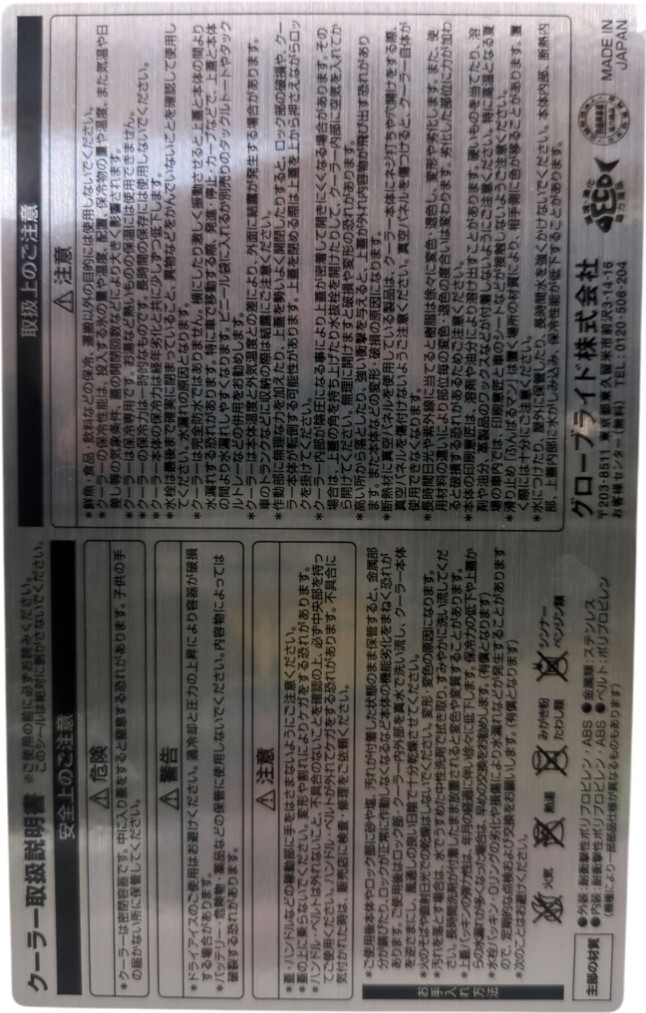 クーラー取扱説明書
※ご使用の前に必ずお読みください。
このシールは絶対に剥がさないでください。
安全上のご注意
⚠危険
*クーラーは密閉容器です。中に入り蓋をすると窒息する恐れがあります。子供の手
の届かない所に保管してください。
⚠警告
*ドライアイスのご使用はお避けください。過冷却と圧力の上昇により容器が破損
する場合があります。
*バッテリー・危険物・薬品などの保管に使用しないでください。内容物によっては
破裂する恐れがあります。
⚠注意
*蓋、ハンドルなどの稼動部に手をはさまないようにご注意ください。
*蓋の上に乗らないでください。変形や割れによりケガをする恐れがあります。
*ハンドル・ベルトは外れないこと、不具合のないことを確認の上、必ず中央部を持っ
てご使用ください。ハンドル・ベルトが外れてケガをする恐れがあります。不具合に
気付かれた時は、販売店に検査・修理をご依頼ください。
お手入れ方法
*ご使用後本体やロック部に砂や塩、汚れが付着した状態のまま保管すると、金属部
分が錆びたり、ロックが正常に作動しなくなるなど本体の機能劣化をまねく恐れが
あります。ご使用後はロック部・クーラー内外部を真水で洗い流し、クーラー本体
を逆さまにし、風通しの良い日陰で十分乾燥させてください。
*火のそばや直射日光での乾燥はしないでください。変形・変色の原因になります。
*汚れを落とす場合は、水でうすめた中性洗剤で拭き取り、すみやかに洗い流してくだ
さい。長時間洗剤が付着したまま放置されると変色や変質することがあります。
*上蓋パッキンの弾力性は、年月の経過に伴い徐々に低下します。保冷力の低下や上蓋か
らの水漏れが多くなった場合は、早めの交換をお勧めします。(有償となります)
*水栓パッキン・Oリングの劣化や損傷により水漏れなどが発生することがあります
ので、定期的な点検および交換をお願いします。(有償となります)
*次のことはお避けください。
火気
熱湯
みがき粉
たわし類
シンナー
ベンジン類
主部の材質
●外装:耐衝撃性ポリプロピレン・ABS ●金属類:ステンレス
●内装:耐衝撃性ポリプロピレン・ABS ●ベルト:ポリプロピレン
(機種により一部部品仕様が異なるものもあります)
取扱上のご注意
⚠注意
*鮮魚・食品・飲料などの保冷、運搬以外の目的には使用しないでください。
*クーラーの保冷性能は、投入する氷の量や温度、配置、保冷物の量や温度、また気温や日
差し等の気象条件、蓋の開閉回数などにより大きく影響されます。
*クーラーは保冷専用です。お湯など熱いものの保温には使用できません。
*クーラーの保冷力は一時的なものです。長時間の保存には使用しないでください。
*クーラー本体の保冷力は経年劣化と共に少しずつ低下します。
*水栓は最後まで確実に閉まっていること、異物などをかんでいないことを確認して使用し
てください。水漏れの原因となります。
*クーラーは完全防水ではありません。横にしたり激しく振動させると上蓋と本体の間より
水漏れする恐れがあります。特に車で移動する際、発進・停止・カーブなどで、上蓋と本体
の間より水漏れしやすくなります。ビニール袋に入れるか別売りのタックルトートやタック
ルトレーなどの併用をお勧めします。
*クーラーは本体温度と外気温度との差により、外面に結露が発生する場合があります。
車のトランクなどに収納の際は結露にご注意ください。
*作動部に無理な力を加えたり、上蓋を勢いよく開閉したりすると、ロック部の破損や、クー
ラー本体が転倒する可能性があります。上蓋を閉める際は上蓋を上から押さえながらロッ
クを掛けてください。
*クーラー内部が陰圧になる事により上蓋が密着して開きにくくなる場合があります。その
場合は、上蓋の角を持ち上げたり水抜栓を開けたりして、クーラー内部に空気を入れてか
ら開けてください。無理に開けますと破損や変形の恐れがあります。
*高い所から落としたり、強い衝撃を与えると、上蓋が外れ内容物が飛び出す恐れがあり
ます。また本体などの変形・破損の原因になります。
*断熱材に真空パネルを使用している製品は、クーラー本体にネジ打ちや穴開けをする際、
真空パネルを傷付けないようご注意ください。真空パネルを傷つけると、クーラー自体が
使用できなくなります。
*長時間日光や紫外線に当てると樹脂は徐々に変色・退色し、変形や劣化します。また、使
用材料の違いにより部位毎の変色・退色の度合いは変わります。劣化した部位に力が加わ
ると破損する恐れがあるためご注意ください。
*本体の印刷意匠は、溶剤や油分により溶け出すことがあります。硬いものを当てたり、溶
剤や油分、革製品のワックスなどが付着しないようにご注意ください。特に高温となる夏
場の車内では、印刷意匠と車のシートなどが接触しないようご注意ください。
*滑り止め「ふんばるマン」は置く場所の材質により、相手側に色が移ることがあります。置
く際には十分にご注意ください。
*水につけたり、屋外に保管したり、長時間水を強くかけないでください。本体内部、断熱内
部、上蓋内部に水がしみ込み、保冷性能が低下することがあります。
グローブライド株式会社
〒203-8511 東京都東久留米市前沢3-14-16
お客様センター(無料) TEL:0120-506-204
ECO
MADE IN
JAPAN